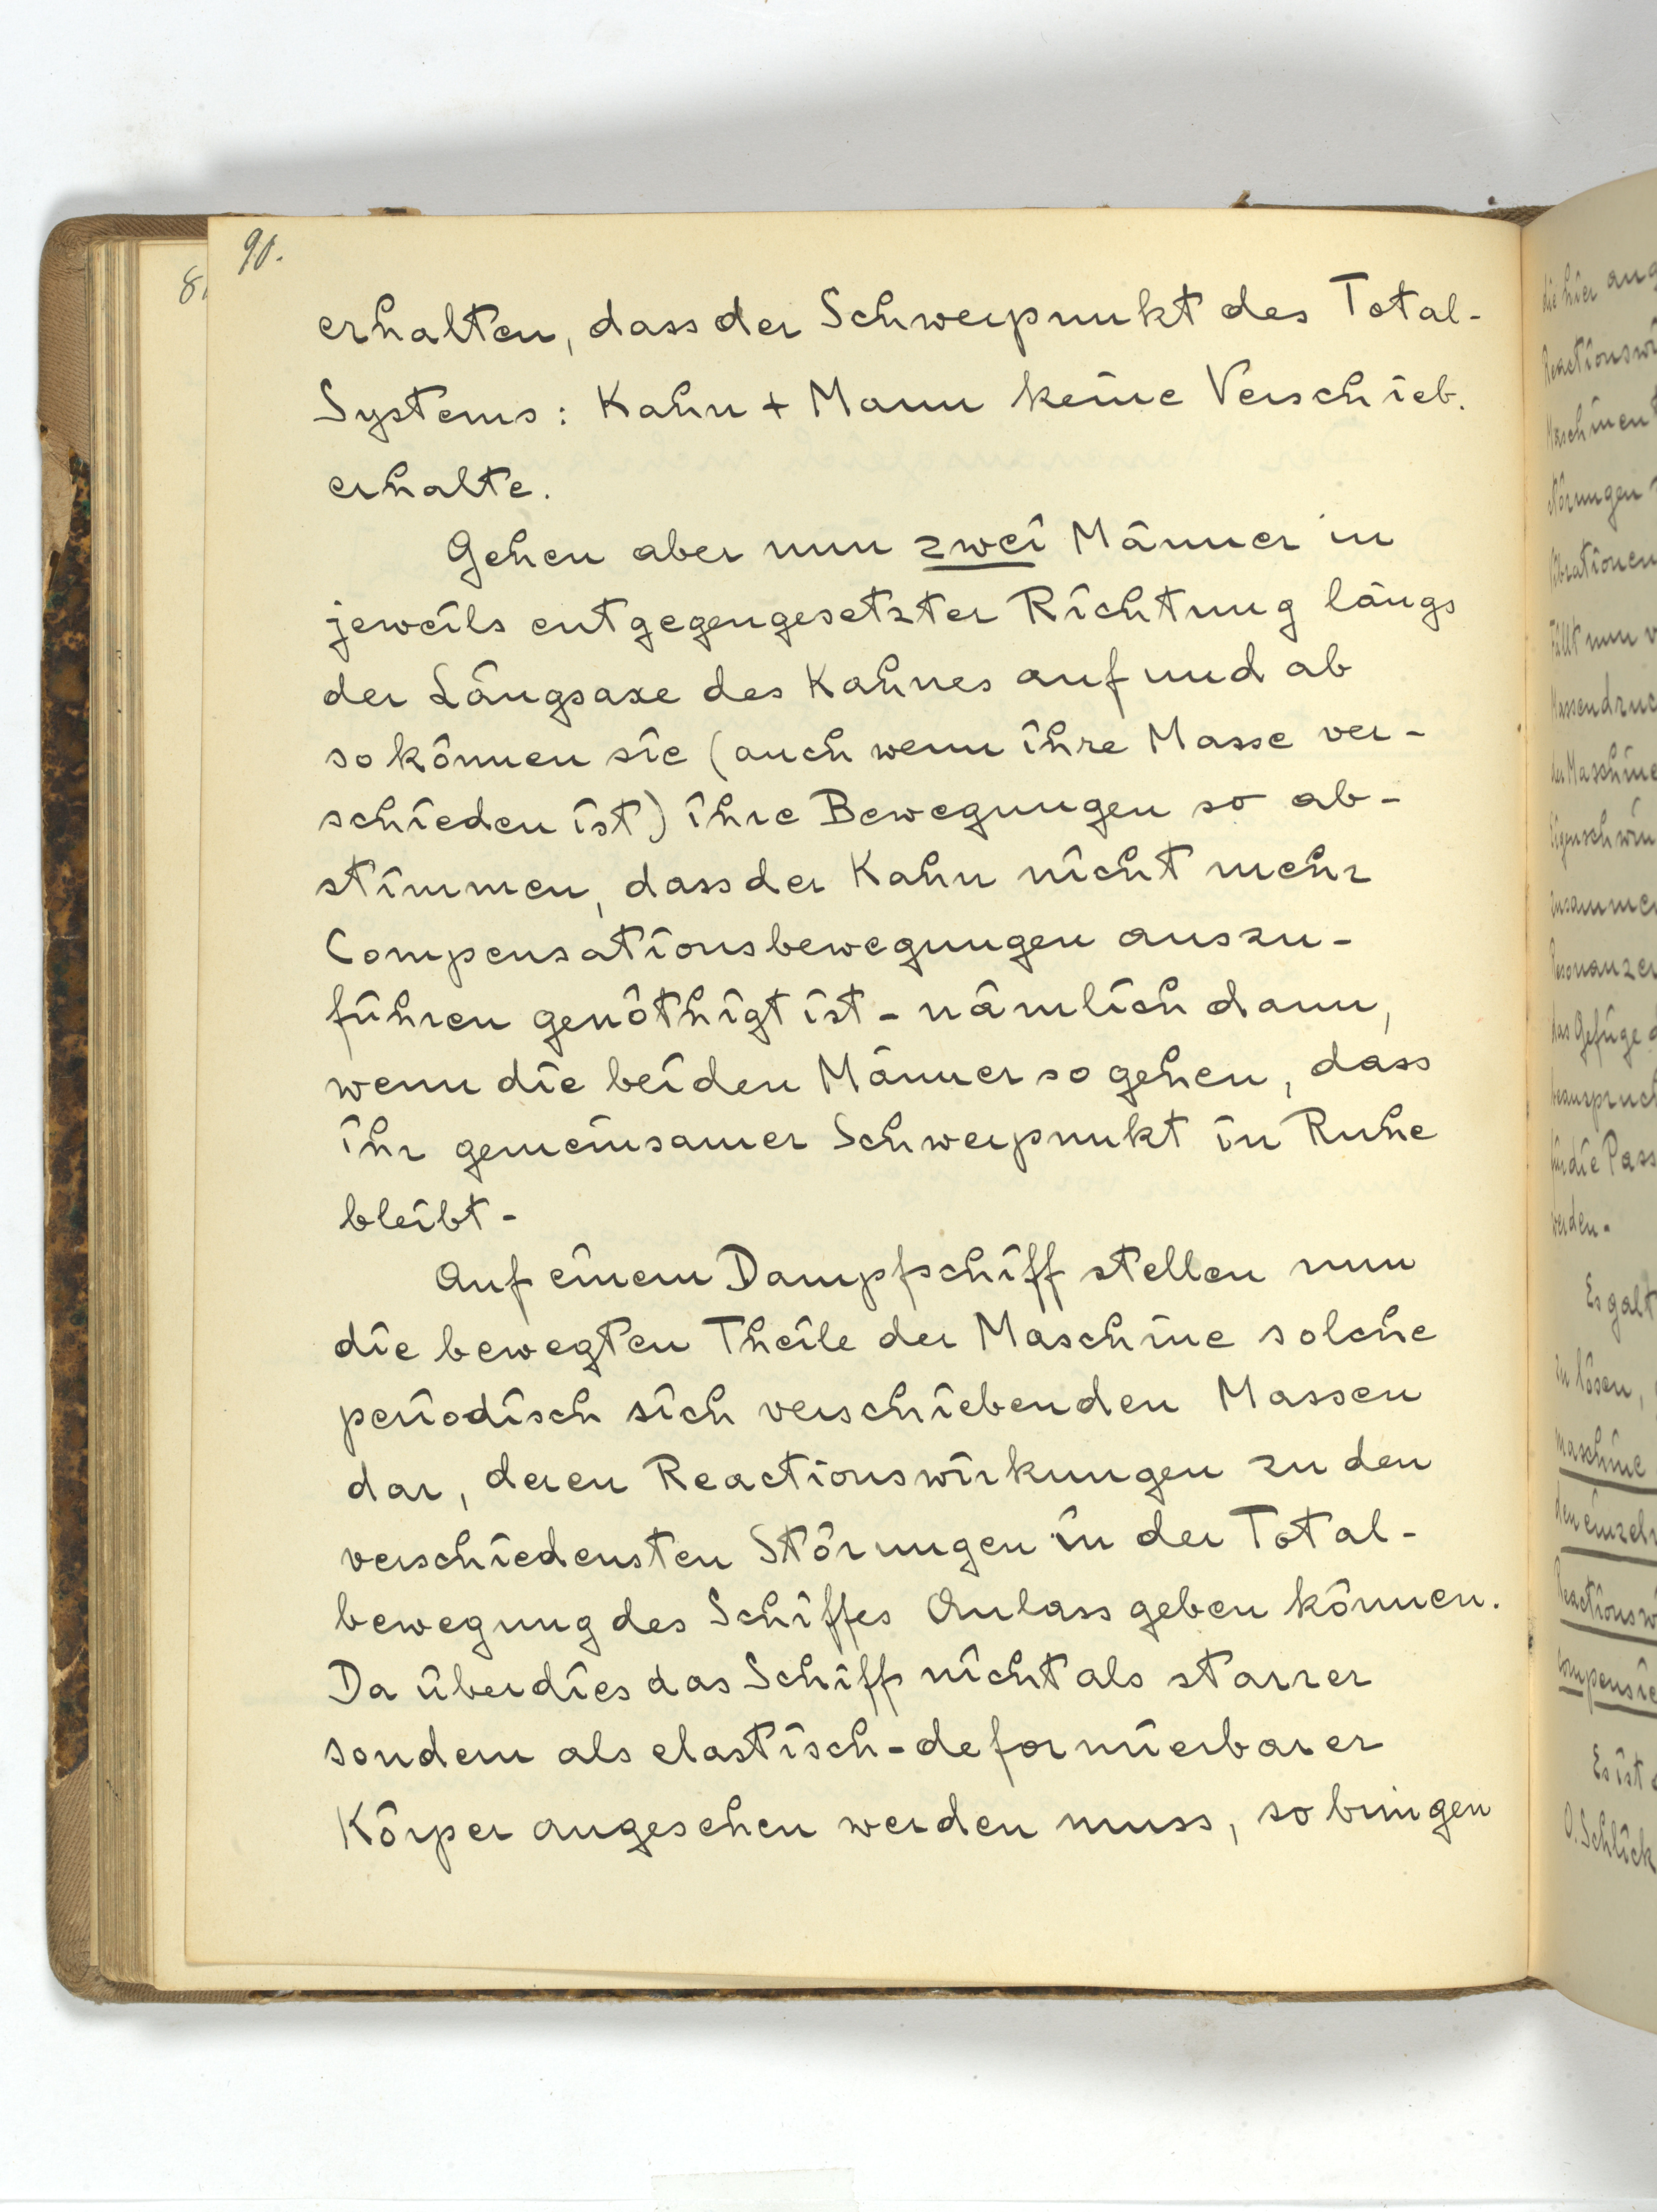 90.
erhalten, dass der Schwerpunkt des Total-
Systems: Kahn + Mann keine Verschieb.
erhalte.
Gehen aber nun zwei Männer in
jeweils entgegengesetzter Richtung längs
der Längsaxe des Kahnes auf und ab
so können sie (auch wenn ihre Masse ver-
schieden ist) ihre Bewegungen so ab-
stimmen, dass der Kahn nicht mehr
Compensationsbewegungen auszu-
führen genöthigt ist - nämlich dann,
wenn die beiden Männer so gehen, dass
ihr gemeinsamer Schwerpunkt in Ruhe
bleibt -
Auf einem Dampfschiff stellen nun
die bewegten Theile der Maschine solche
periodisch sich verschiebenden Massen
dar, deren Reactionswirkungen zu den
verschiedensten Störungen in der Total-
bewegung des Schiffes Anlass geben können.
Da überdies das Schiff nicht als starrer
sondern als elastisch-deformierbarer
Körper angesehen werden muss, so bringen
die hier
Maschinen
Störungen
Vibrationen
Fällt nun
der Maschine
das Gefüge
für die
werden.
Es galt
zu lösen,
Maschine
Es ist
O. Schlick